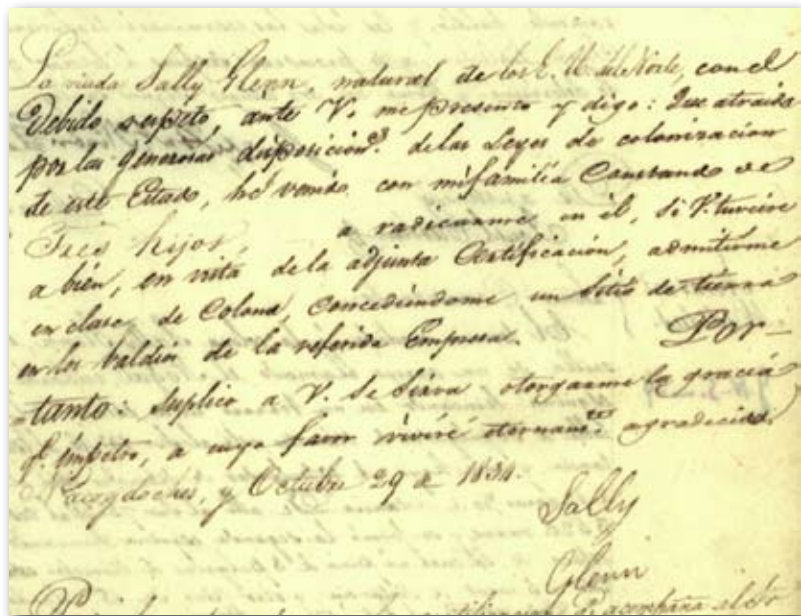 La viuda Sally Glenn, natural de los E. U. del Norte, con el
debido respeto, ante V. me presento y digo: Que atraida
por las generosas disposicion.s de las Leyes de colonizacion
de este Estado, hé venido con mi familia Constando de
Tres hijos, a radicarme en él, si V. tuviere
a bien, en vista de la adjunta Certificación, admitirme
en clase de Colona, concediéndome un Sitio de tierra
en los baldíos de la referida Empresa. Por-
tanto: Suplico a V. se sirva otorgarme la gracia
q.e impetro, a cuyo favor viviré eternam.te agradecida.
Nacogdoches, y Octubre 29 de 1834.
Sally
Glenn
acompaña al